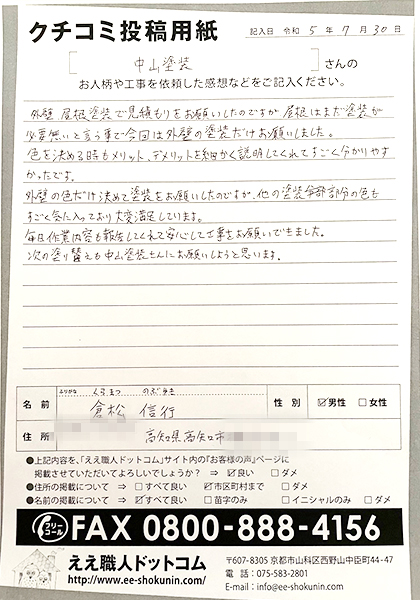 クチコミ投稿用紙
記入日 令和 5 年 7 月 30 日
中山塗装 さんの
お人柄や工事を依頼した感想などをご記入ください。
外壁 屋根塗装で見積もりをお願いしたのですが 屋根はまだ塗装が
必要無いと言う事で今回は外壁の塗装だけお願いしました。
色を決める時もメリット、デメリットを細かく説明してくれてすごく分かりやす
かったです。
外壁の色だけ決めて塗装をお願いしたのですが、他の塗装部分の色も
すごく気に入っており大変満足しています。
毎日作業内容も報告してくれて安心して工事をお願いできました。
次の塗り替えも中山塗装さんにお願いしようと思います。
ふりがな くらまつ のぶゆき
名前 倉松 信行 性別 ☑男性 □女性
住所 高知県高知市
●上記内容を、「ええ職人ドットコム」サイト内の『お客様の声』ページに
掲載させていただいてよろしいでしょうか? ⇒ ☑良い □ダメ
●住所の掲載について ⇒ □すべて良い ☑市区町村まで □ダメ
●名前の掲載について ⇒ ☑すべて良い □苗字のみ □イニシャルのみ □ダメ
フリーコール FAX 0800-888-4156
ええ職人ドットコム
http://www.ee-shokunin.com/
〒607-8305 京都市山科区西野山中臣町44-47
電話：075-583-2801
E-mail：info@ee-shokunin.com